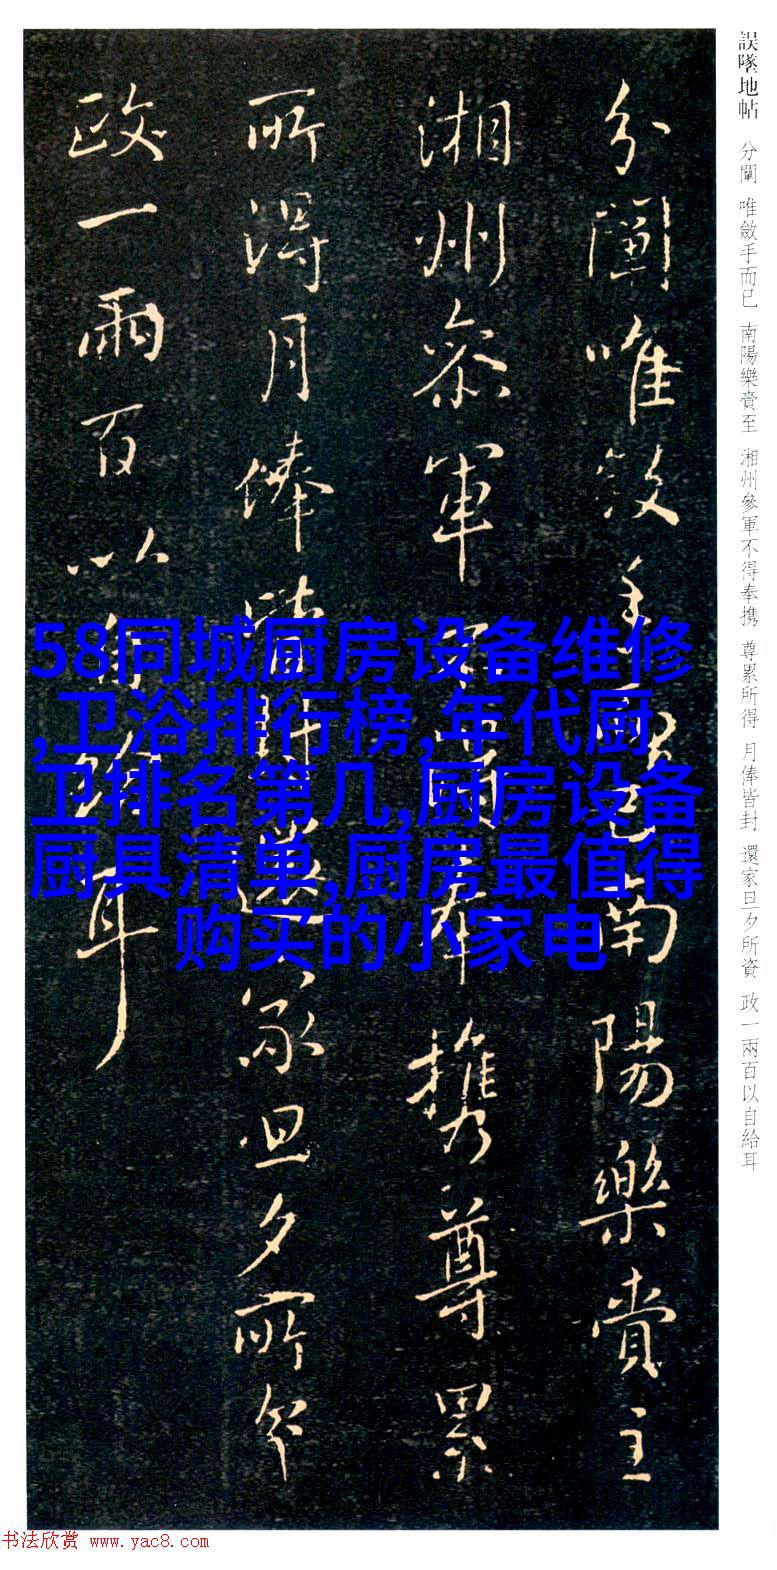 誤墜地帖 分闡 唯斂手而已 南陽樂賫至 湘州參軍不得奉携 尊累所得 月俸皆封 還家旦夕所資 政一兩百以自給耳
分闡唯斂手而已南陽樂賫至
湘州參軍不得奉携尊累
所得月俸皆封還家旦夕所資
政一兩百以自給耳
58同城厨房设备维修
,卫浴排行榜,年代厨
卫排名第几,厨房设备
厨具清单,厨房最值得
购买的小家电
书法欣赏 www.yac8.com